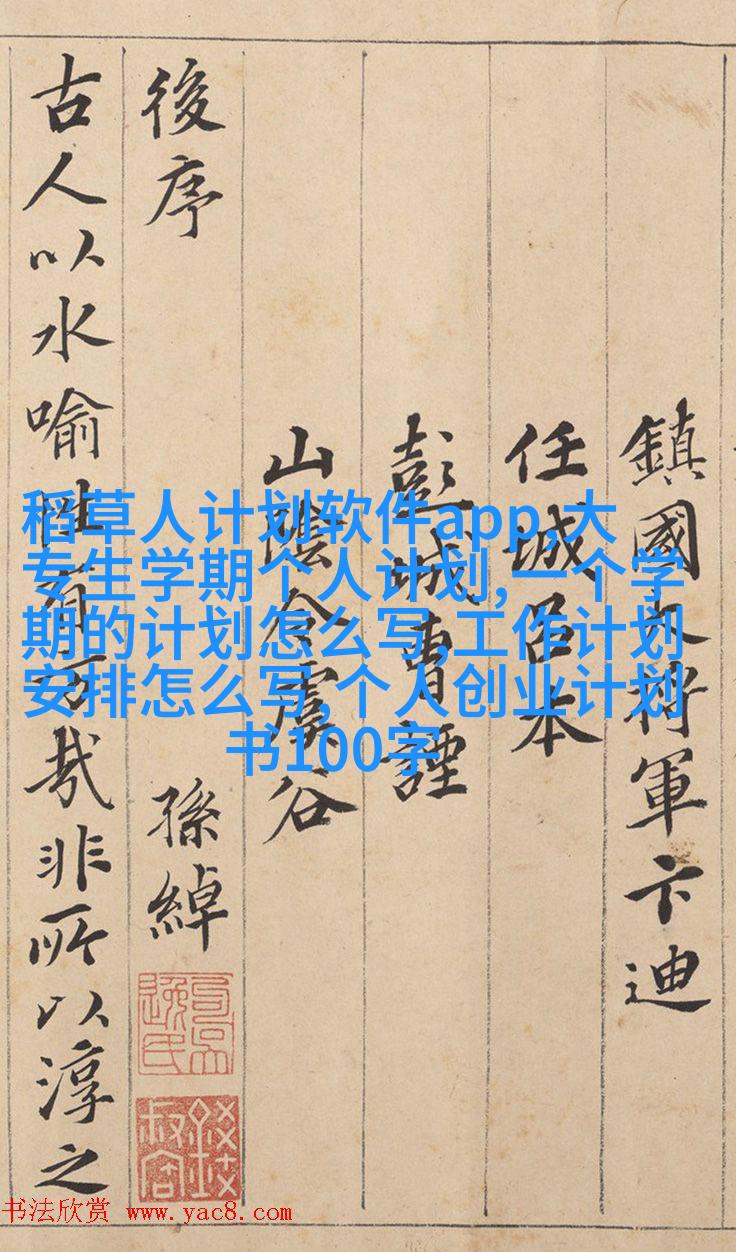 鎮國大將軍卞迪
任城呂本
彭城曹諲
山陰令虞谷
後序
孫綽
古人以水喻性有旨哉非所以淳之
稻草人计划软件app,大
专生学期个人计划,一个学
期的计划怎么写,工作计划
安排怎么写,个人创业计划
书100字
书法欣赏 www.yac8.com